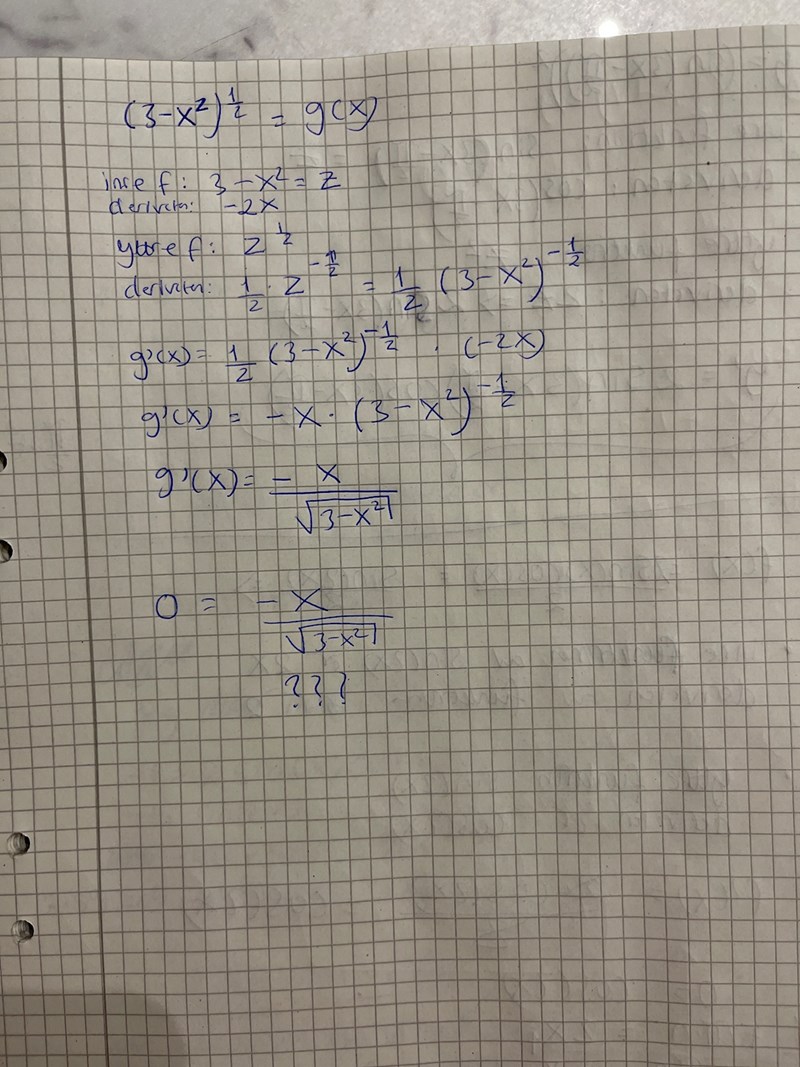 (3-x²)^½ = g(x)
inre f: 3-x² = z
derivatan: -2x
yttre f: z^½
derivatan: 1/2 · z^-½ = 1/2 (3-x²)^-½
g'(x) = 1/2 (3-x²)^-½ · (-2x)
g'(x) = -x · (3-x²)^-½
g'(x) = -x/√(3-x²)
0 = -x/√(3-x²)
???